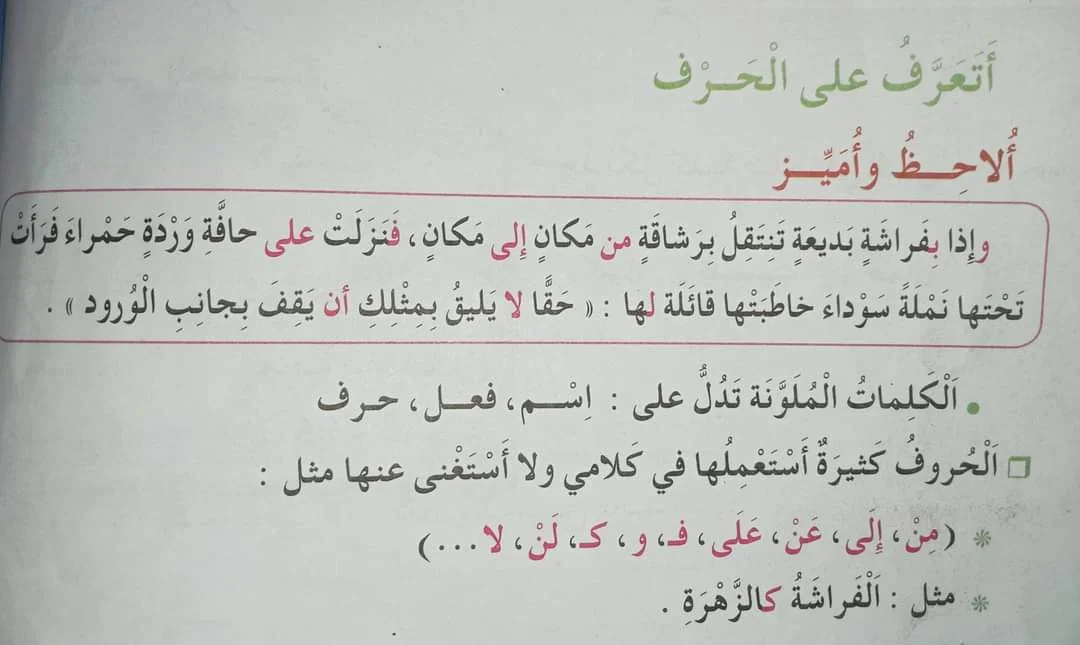 أَتَعَرَّفُ على الْحَـرْف
أُلاحِـظُ وأُمَيِّـز
وإِذا بِفَراشَةٍ بَديعَةٍ تَنِتَقِلُ بِرَشاقَةٍ من مَكانٍ إِلى مَكانٍ، فَنَزَلَتْ على حافَّةِ وَرْدَةٍ حَمْراءَ فَرَأَتْ
تَحْتَها نَمْلَةً سَوْداءَ خاطَبَتْها قائَلَة لها : « حَقًّا لا يَليقُ بِمِثْلِكِ أن يَقِفَ بِجانِبِ الْوُرود » .
• اَلْكَلِماتُ الْمُلَوَّنَة تَدُلُّ على : اِسْـم، فعـل، حـرف
اَلْحُروفُ كَثيرَةٌ أَسْتَعْمِلُها في كَلامي ولا أَسْتَغْنى عنها مثل :
* (مِنْ، إِلَى، عَنْ، عَلَى، فـ، و، كـ، لَنْ، لا...)
* مثل : اَلْفَراشَةُ كالزَّهْرَةِ .